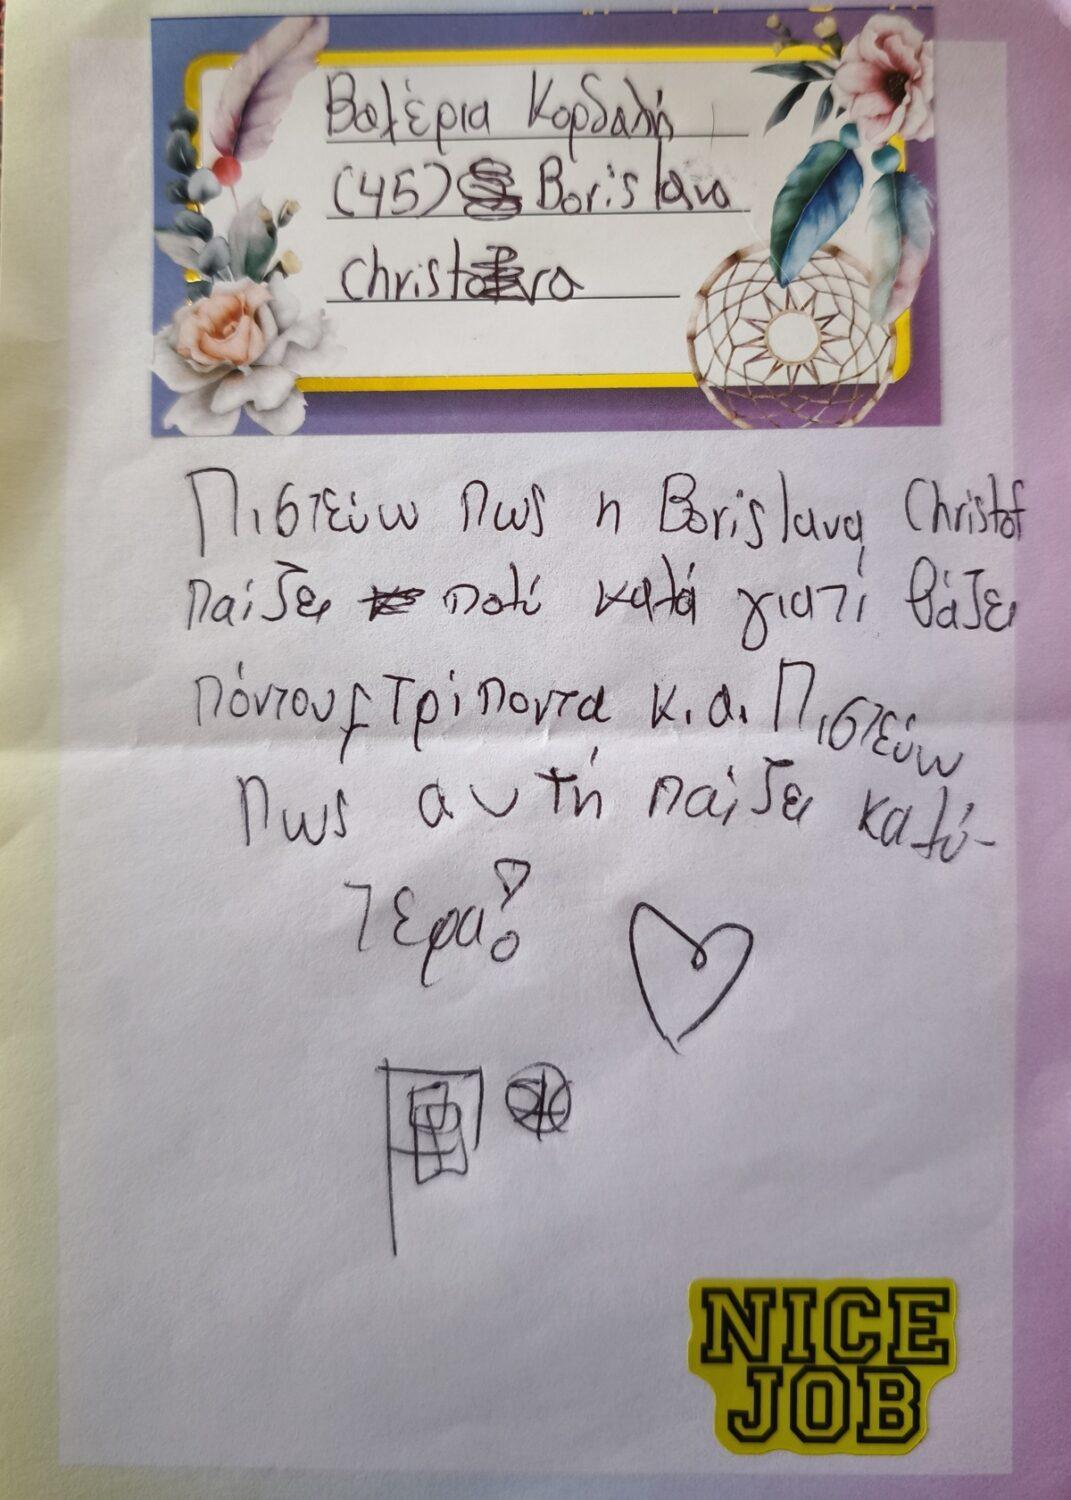 Βαλέρια Κορδαλή
(45) Borislava
Christova
Πιστεύω πως η Borislava Christof
παίζει πολύ καλά γιατί βάζει
πόντους τρίποντα κ.α. Πιστεύω
πως αυτή παίζει καλύ-
τερα!
NICE
JOB